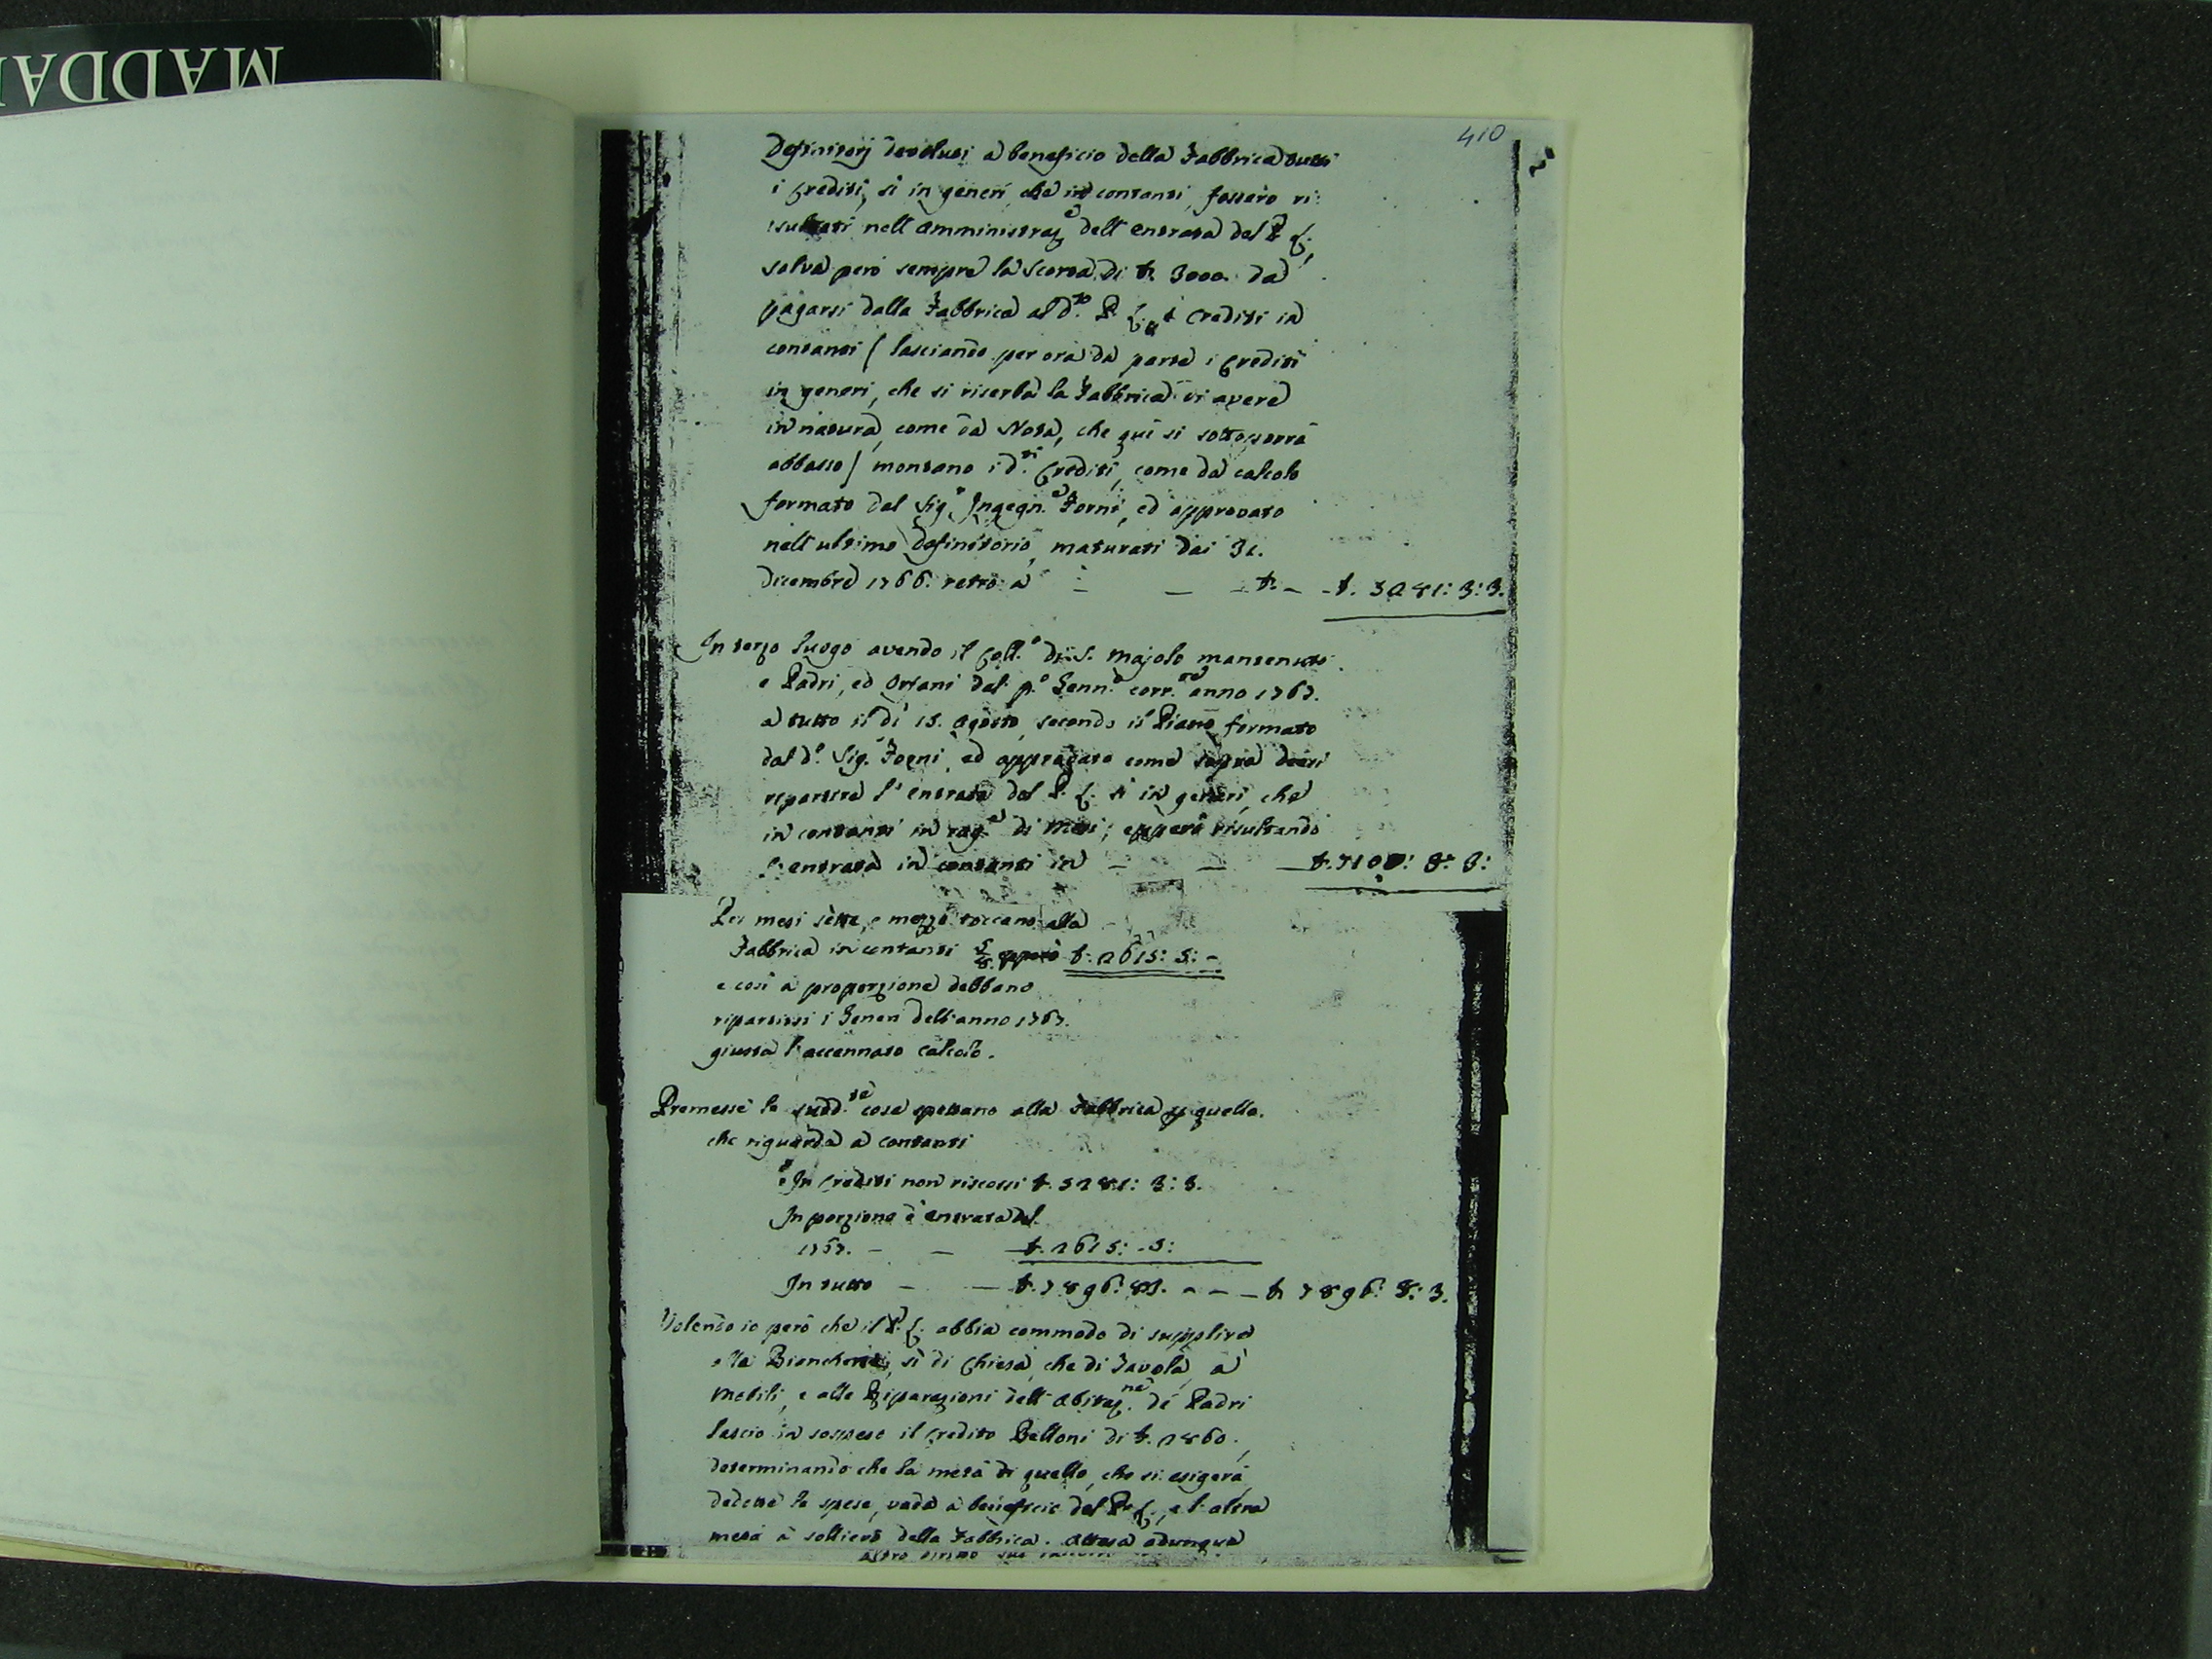 MADDA
410
Definitorj devoluti a beneficio della Fabbrica tutti
i Crediti, sì in generi, che in contanti, fossero ri:
sultati nell'Amministraz.e dell'entrata del P. C.,
salva però sempre la Scorta di £. 3000. da
pagarsi dalla Fabbrica al d.to P. C. i Crediti in
contanti / lasciando per ora da parte i Crediti
in generi, che si riserba la Fabbrica di avere
in natura, come da Nota, che quì si sottoporrà
abbasso / montano i d.ti Crediti, come da calcolo
formato dal Sig.r Ingegn.e Forni, ed approvato
nell'ultimo Definitorio, maturati dai 31.
Dicembre 1766. retro a — — £. — £. 5281: 3: 3.
In terzo luogo avendo il Coll.o di S. Majolo mantenuto
e Padri, ed Orfani dal p.o Genn.o corr.te anno 1767.
a tutto il dì 15. Agosto, secondo il Piano formato
dal d.o Sig.r Forni, ed approvato come sopra devesi
repartire l'entrata del P. C. sì in generi, che
in contanti in rag.e di Mesi; epperò risultando
l'entrata in contanti in — — £. : 8: 3:
Per mesi sette, e mezzo toccano alla
Fabbrica in contanti 5/8 epperò £. 2615: 5: -
e così a proporzione debbano
ripartirsi i Generi dell'anno 1767.
giusta l'accennato calcolo.
Premesse le sudd.te cose spettano alla Fabbrica p quello.
che riguarda a contanti
In Crediti non riscossi £. 5281: 3: 3.
In porzione d'entrata del
1767. — — £. 2615: 5:
In tutto — — £. 7896: 8: 3. — — — £. 7896: 8: 3.
Volendo io però che il P. C. abbia commodo di supplire
alla Biancheria, sì di Chiesa, che di Tavola, a'
Mobili, e alle Riparazioni dell'Abitaz.ne de' Padri
lascio in sospeso il Credito Belloni di £. 2860.,
determinando che la metà di quello, che si esigerà,
dedotte le spese, vada a beneficio del P. C., e l'altra
metà a sollievo della Fabbrica. Attesa adunque